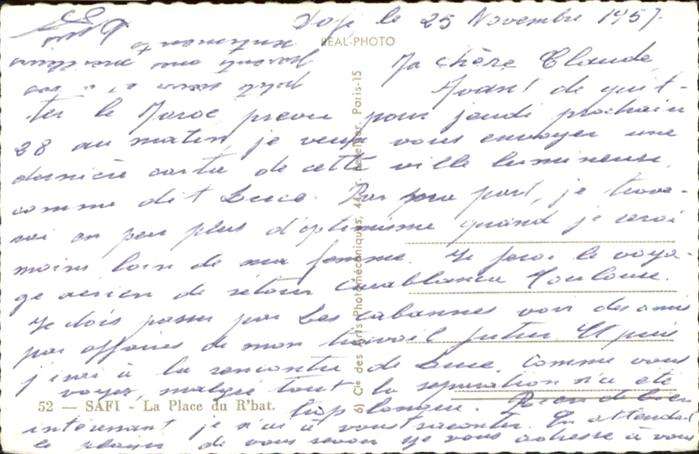 le 25 Novembre 1957.
REAL-PHOTO
Ma chère Claude
Avant de quit-
ter le Maroc prévu pour jeudi prochain
28 au matin, je veux vous envoyer une
dernière carte de cette ville lumineuse,
comme dit Luce. Par pour part, je trouve-
rai un peu plus d'optimisme quand je serai
moins loin de ma femme. Je ferai le voya-
ge aérien de retour Casablanca Toulouse.
Je dois passer par Les Cabannes voir des amis
par affaires de mon travail futur. Et puis
j'irai à la rencontre de Luce. Comme vous
voyez, malgré tout la séparation n'a été
52 — SAFI - La Place du R'bat.
trop longue. Rien de bien
intéressant je n'ai à vous raconter. En attendant
le plaisir de vous revoir je vous adresse à vous
61 Cie des Arts Photomécaniques, Paris-15